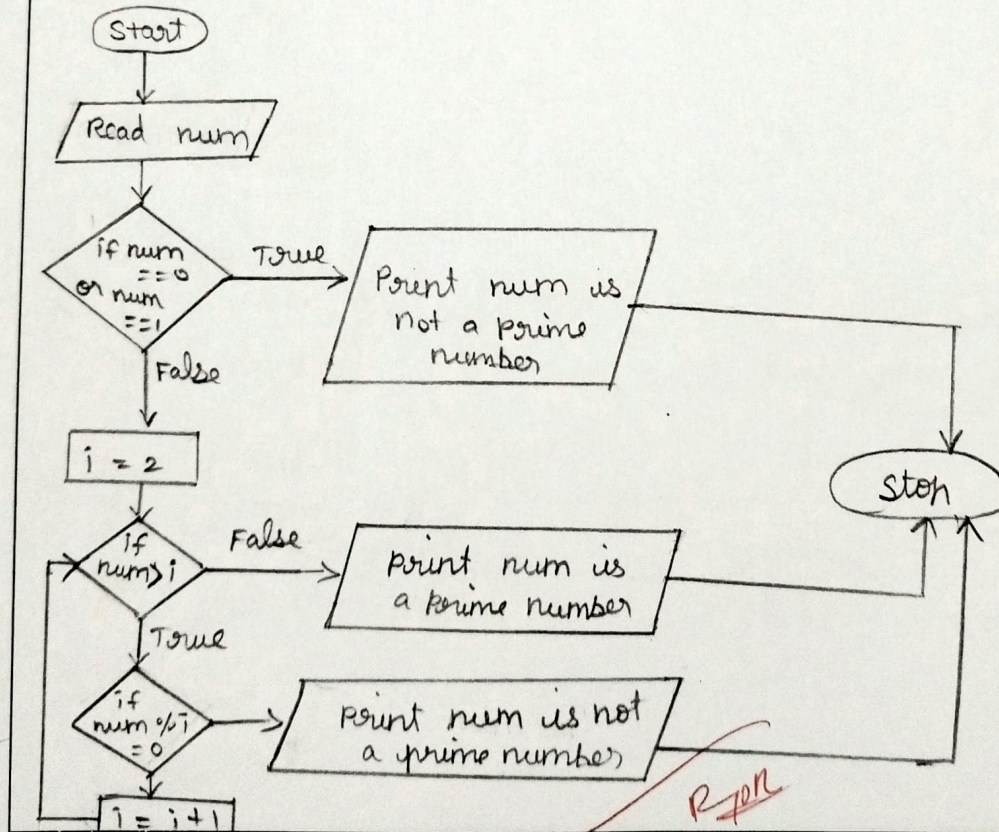 Start
Read num
if num
==0
or num
==1
True
Print num is
not a prime
number
False
i = 2
if
num>i
False
print num is
a prime number
Stop
True
if
num%i
=0
print num is not
a prime number
i = i+1